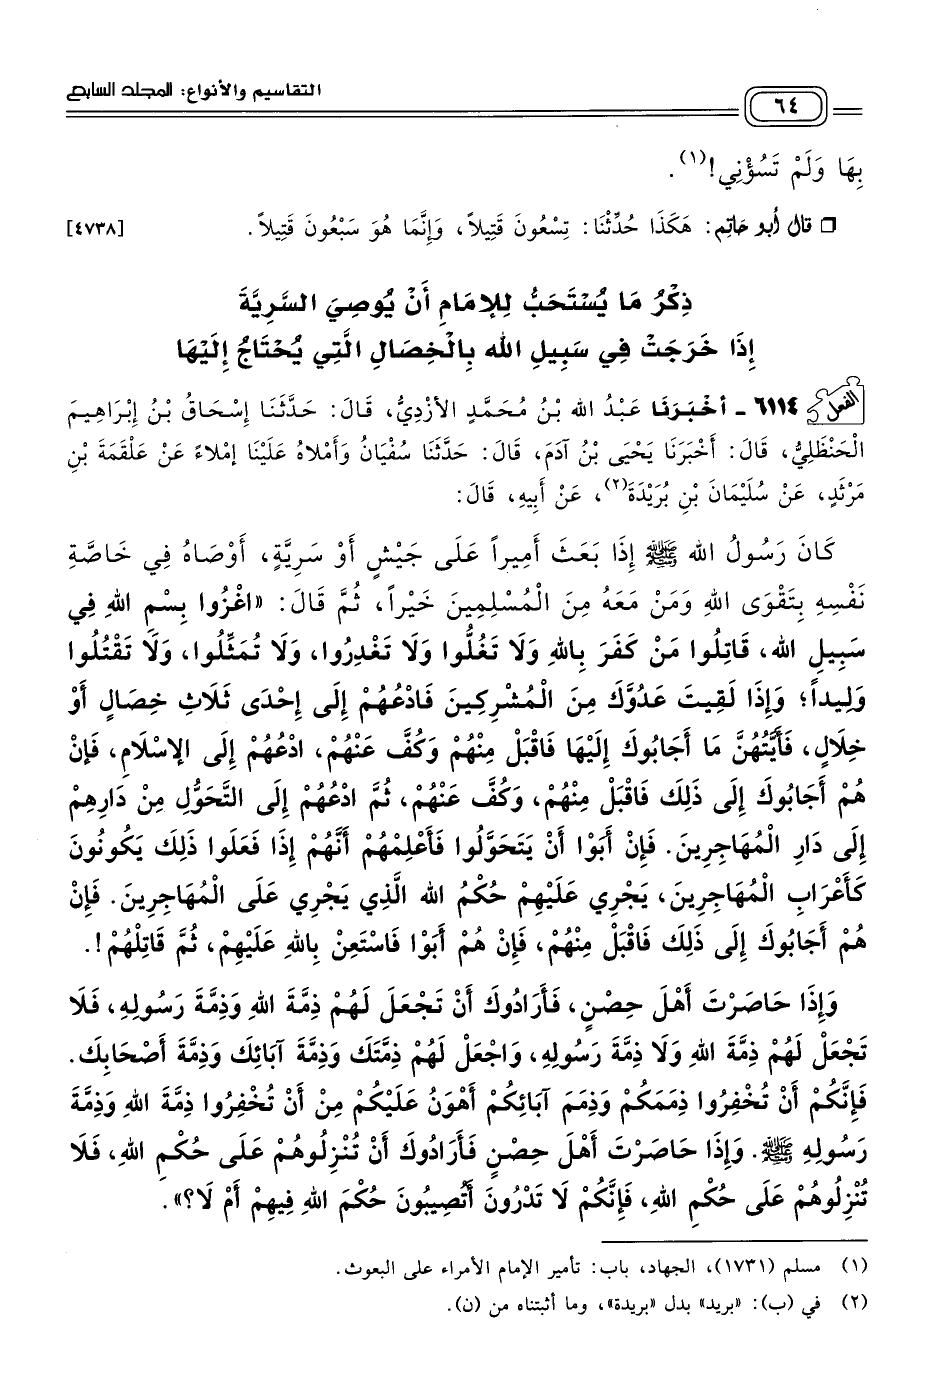 ٦٤
التقاسيم والأنواع: المجلد السابع
بِهَا وَلَمْ تَسُؤْنِي!(١).
❐ قال أبو حاتِم: هَكَذَا حُدِّثْنَا: تِسْعُونَ قَتِيلاً، وَإِنَّمَا هُوَ سَبْعُونَ قَتِيلاً. [٤٧٣٨]
ذِكْرُ مَا يُسْتَحَبُّ لِلإمَامِ أَنْ يُوصِيَ السَّرِيَّةَ
إِذَا خَرَجَتْ فِي سَبِيلِ الله بِالْخِصَالِ الَّتِي يُحْتَاجُ إِلَيْهَا
الفعل ٦١١٤ - أَخْبَرَنَا عَبْدُ الله بْنُ مُحَمَّدٍ الأزْدِيُّ، قَالَ: حَدَّثَنَا إِسْحَاقُ بْنُ إِبْرَاهِيمَ
الْحَنْظَلِيُّ، قَالَ: أَخْبَرَنَا يَحْيَى بْنُ آدَمَ، قَالَ: حَدَّثَنَا سُفْيَانُ وَأَمْلاهُ عَلَيْنَا إمْلاءً عَنْ عَلْقَمَةَ بْنِ
مَرْثَدٍ، عَنْ سُلَيْمَانَ بْنِ بُرَيْدَةَ(٢)، عَنْ أَبِيهِ، قَالَ:
كَانَ رَسُولُ الله ﷺ إِذَا بَعَثَ أَمِيراً عَلَى جَيْشٍ أَوْ سَرِيَّةٍ، أَوْصَاهُ فِي خَاصَّةِ
نَفْسِهِ بِتَقْوَى اللهِ وَمَنْ مَعَهُ مِنَ الْمُسْلِمِينَ خَيْراً، ثُمَّ قَالَ: «اغْزُوا بِسْمِ اللهِ فِي
سَبِيلِ الله، قَاتِلُوا مَنْ كَفَرَ بِاللهِ وَلَا تَغُلُّوا وَلَا تَغْدِرُوا، وَلَا تُمَثِّلُوا، وَلَا تَقْتُلُوا
وَلِيداً؛ وَإِذَا لَقِيتَ عَدُوَّكَ مِنَ الْمُشْرِكِينَ فَادْعُهُمْ إِلَى إِحْدَى ثَلَاثِ خِصَالٍ أَوْ
خِلَالٍ، فَأَيَّتُهُنَّ مَا أَجَابُوكَ إِلَيْهَا فَاقْبَلْ مِنْهُمْ وَكُفَّ عَنْهُمْ، ادْعُهُمْ إِلَى الإسْلَامِ، فَإِنْ
هُمْ أَجَابُوكَ إِلَى ذَلِكَ فَاقْبَلْ مِنْهُمْ، وَكُفَّ عَنْهُمْ، ثُمَّ ادْعُهُمْ إِلَى التَّحَوُّلِ مِنْ دَارِهِمْ
إِلَى دَارِ الْمُهَاجِرِينَ. فَإِنْ أَبَوْا أَنْ يَتَحَوَّلُوا فَأَعْلِمْهُمْ أَنَّهُمْ إِذَا فَعَلُوا ذَلِكَ يَكُونُونَ
كَأَعْرَابِ الْمُهَاجِرِينَ، يَجْرِي عَلَيْهِمْ حُكْمُ الله الَّذِي يَجْرِي عَلَى الْمُهَاجِرِينَ. فَإِنْ
هُمْ أَجَابُوكَ إِلَى ذَلِكَ فَاقْبَلْ مِنْهُمْ، فَإِنْ هُمْ أَبَوْا فَاسْتَعِنْ بِاللهِ عَلَيْهِمْ، ثُمَّ قَاتِلْهُمْ!.
وَإِذَا حَاصَرْتَ أَهْلَ حِصْنٍ، فَأَرَادُوكَ أَنْ تَجْعَلَ لَهُمْ ذِمَّةَ اللهِ وَذِمَّةَ رَسُولِهِ، فَلَا
تَجْعَلْ لَهُمْ ذِمَّةَ اللهِ وَلَا ذِمَّةَ رَسُولِهِ، وَاجْعَلْ لَهُمْ ذِمَّتَكَ وَذِمَّةَ آبَائِكَ وَذِمَّةَ أَصْحَابِكَ.
فَإِنَّكُمْ أَنْ تُخْفِرُوا ذِمَمَكُمْ وَذِمَمَ آبَائِكُمْ أَهْوَنُ عَلَيْكُمْ مِنْ أَنْ تُخْفِرُوا ذِمَّةَ اللهِ وَذِمَّةَ
رَسُولِهِ ﷺ. وَإِذَا حَاصَرْتَ أَهْلَ حِصْنٍ فَأَرَادُوكَ أَنْ تُنْزِلُوهُمْ عَلَى حُكْمِ اللهِ، فَلَا
تُنْزِلُوهُمْ عَلَى حُكْمِ اللهِ، فَإِنَّكُمْ لَا تَدْرُونَ أَتُصِيبُونَ حُكْمَ اللهِ فِيهِمْ أَمْ لَا؟».
(١) مسلم (١٧٣١)، الجهاد، باب: تأمير الإمام الأمراء على البعوث.
(٢) في (ب): «بريد» بدل «بريدة»، وما أثبتناه من (ن).